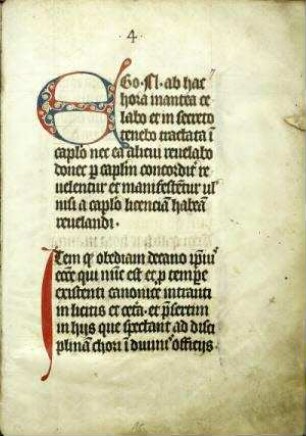 4
Ego .N. ab hac
hora inantea ce
labo et in secreto
tenebo tractata ī
caplo nec ea alicui reuelabo
donec p caplm concordit
reuelentur et manifestent ul
nisi a caplo licencia habeā
reuelandi .
Item qp obediam decano ipiu
ecce qui nūc est et p tempe
existenti canonice intranti
in licitis et ceta . et psertim
in hijs que spectant ad disci
plinā chori ī diuinis officijs .